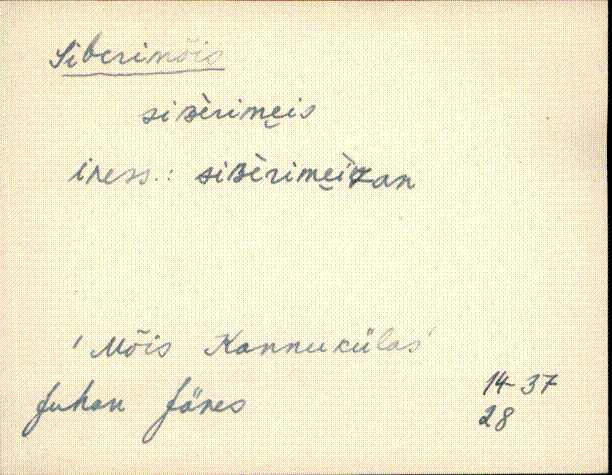 Siberimõis
siʙèrime̮is
iness.: siʙèrime̮i̮zan
'Mõis Kannukülas'
Juhan Jänes
14-37
28